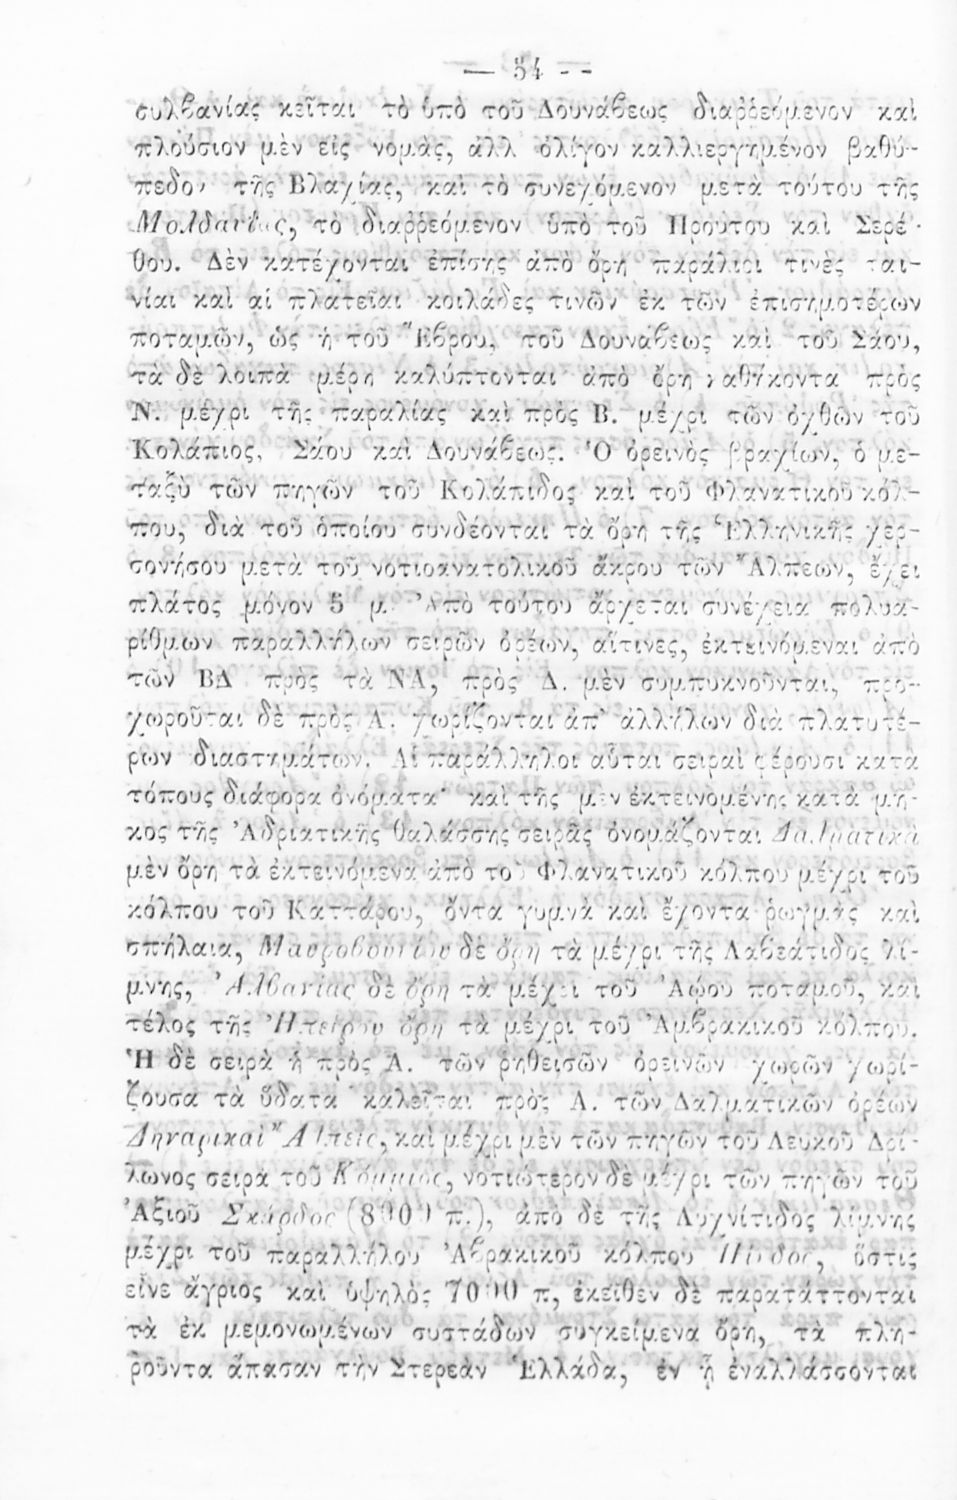 — 54 —
συλβανίας κεῖται τὸ ὑπὸ τοῦ Δουνάβεως διαῤῥεόμενον καὶ
πλούσιον μὲν εἰς νομὰς, ἀλλ' ὀλίγον καλλιεργημένον βαθύ-
πεδον τῆς Βλαχίας, καὶ τὸ συνεχόμενον μετὰ τούτου τῆς
Μολδαυΐας, τὸ διαῤῥεόμενον ὑπὸ τοῦ Προύτου καὶ Σερέ-
θου. Δὲν κατέχονται ἐπίσης ἀπὸ ὄρη παράλιοι τινὲς ται-
νίαι καὶ αἱ πλατεῖαι κοιλάδες τινῶν ἐκ τῶν ἐπισημοτέρων
ποταμῶν, ὡς ἡ τοῦ Ἕβρου, τοῦ Δουνάβεως καὶ τοῦ Σάου,
τὰ δὲ λοιπὰ μέρη καλύπτονται ἀπὸ ὄρη καθήκοντα πρὸς
Ν. μέχρι τῆς παραλίας καὶ πρὸς Β. μέχρι τῶν ὀχθῶν τοῦ
Κολάπιος, Σάου καὶ Δουνάβεως. Ὁ ὀρεινὸς βραχίων, ὁ με-
ταξὺ τῶν πηγῶν τοῦ Κολάπιδος καὶ τοῦ Φλανατικοῦ κόλ-
που, διὰ τοῦ ὁποίου συνδέονται τὰ ὄρη τῆς Ἑλληνικῆς χερ-
σονήσου μετὰ τοῦ νοτιοανατολικοῦ ἄκρου τῶν Ἄλπεων, ἔχει
πλάτος μόνον 5 μ. Ἀπὸ τούτου ἄρχεται συνέχεια πολυα-
ρίθμων παραλλήλων σειρῶν ὀρέων, αἵτινες, ἐκτεινόμεναι ἀπὸ
τῶν ΒΔ πρὸς τὰ ΝΑ, πρὸς Δ. μὲν συμπυκνοῦνται, προ-
χωροῦται δὲ πρὸς Α. χωρίζονται ἀπ' ἀλλήλων διὰ πλατυτέ-
ρων διαστημάτων. Αἱ παράλληλοι αὗται σειραὶ φέρουσι κατὰ
τόπους διάφορα ὀνόματα· καὶ τῆς μὲν ἐκτεινομένης κατὰ μῆ-
κος τῆς Ἀδριατικῆς θαλάσσης σειρᾶς ὀνομάζονται Δαλματικὰ
μὲν ὄρη τὰ ἐκτεινόμενα ἀπὸ τοῦ Φλανατικοῦ κόλπου μέχρι τοῦ
κόλπου τοῦ Καττάρου, ὄντα γυμνὰ καὶ ἔχοντα ῥωγμὰς καὶ
σπήλαια, Μαυροβουνίου δὲ ὄρη τὰ μέχρι τῆς Λαβεάτιδος λί-
μνης, Ἀλβανίας δὲ ὄρη τὰ μέχρι τοῦ Ἀώου ποταμοῦ, καὶ
τέλος τῆς Ἠπείρου ὄρη τὰ μέχρι τοῦ Ἀμβρακικοῦ κόλπου.
Ἡ δὲ σειρὰ ἡ πρὸς Α. τῶν ῥηθεισῶν ὀρεινῶν χωρῶν χωρί-
ζουσα τὰ ὕδατα καλεῖται πρὸς Α. τῶν Δαλματικῶν ὀρέων
Δηναρικαὶ Ἄλπεις, καὶ μέχρι μὲν τῶν πηγῶν τοῦ Λευκοῦ Δρί-
λωνος σειρὰ τοῦ Κόμμιος, νοτιώτερον δὲ μέχρι τῶν πηγῶν τοῦ
Ἀξιοῦ Σκάρδος (8000 π.), ἀπὸ δὲ τῆς Λυχνίτιδος λίμνης
μέχρι τοῦ παραλλήλου Ἀβρακικοῦ κόλπου Πίνδος, ὅστις
εἶνε ἄγριος καὶ ὑψηλὸς 7000 π, ἐκεῖθεν δὲ παρατάττονται
τὰ ἐκ μεμονωμένων συστάδων συγκείμενα ὄρη, τὰ πλη-
ροῦντα ἅπασαν τὴν Στερεὰν Ἑλλάδα, ἐν ᾗ ἐναλλάσσονται